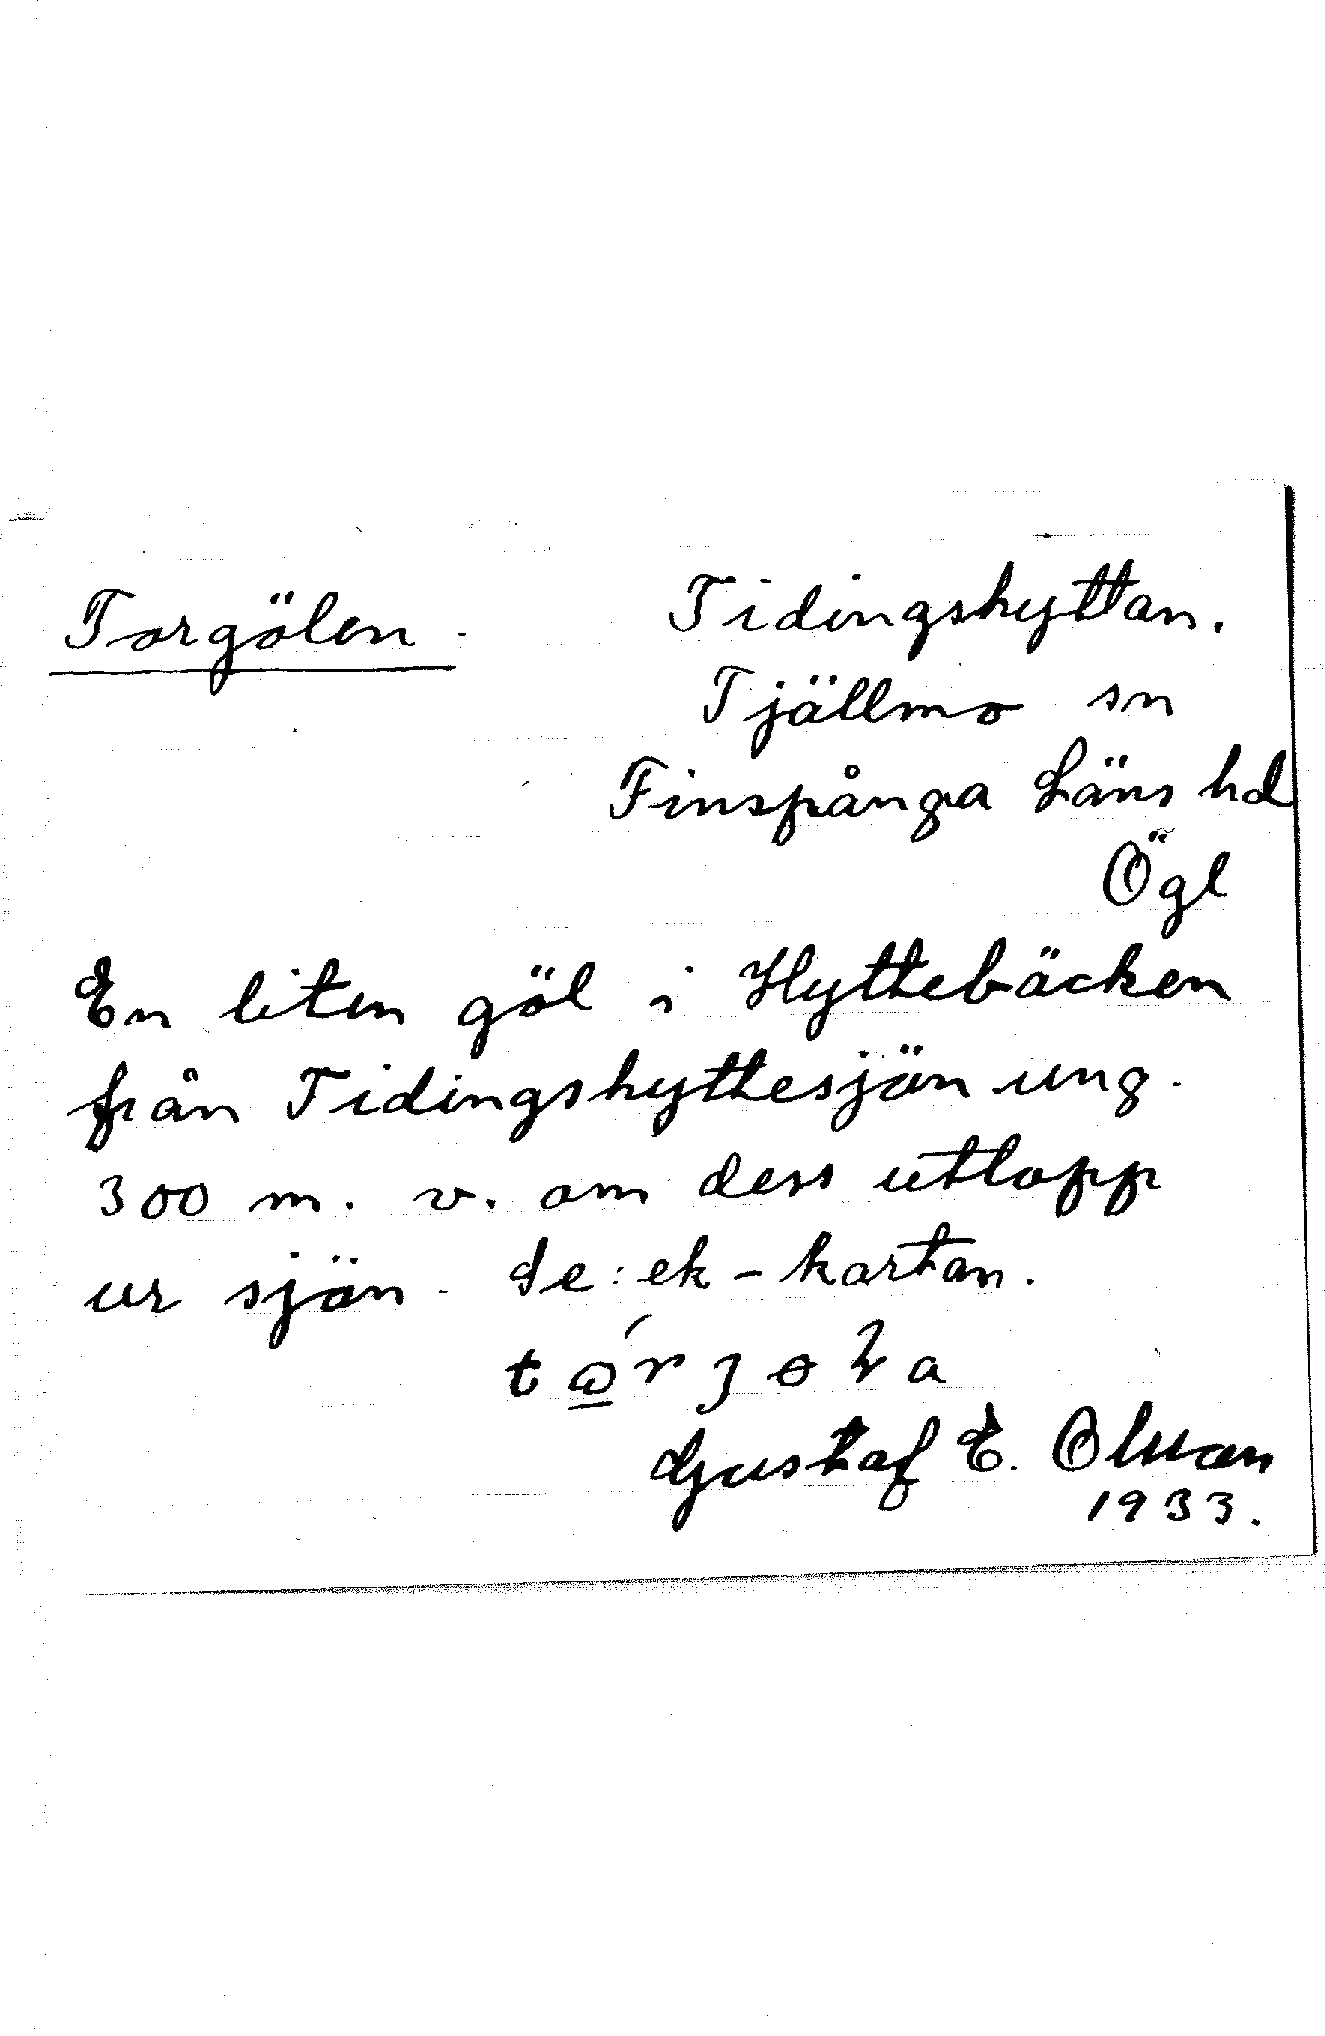 Torgölen.
Tidingshyttan.
Tjällmo sn
Finspånga Läns hd
Ögl
En liten göl i Hyttebäcken
från Tidingshyttesjön ung.
300 m. v. om dess utlopp
ur sjön. Se: ek-kartan.
Gustaf E. Olsson
1933.